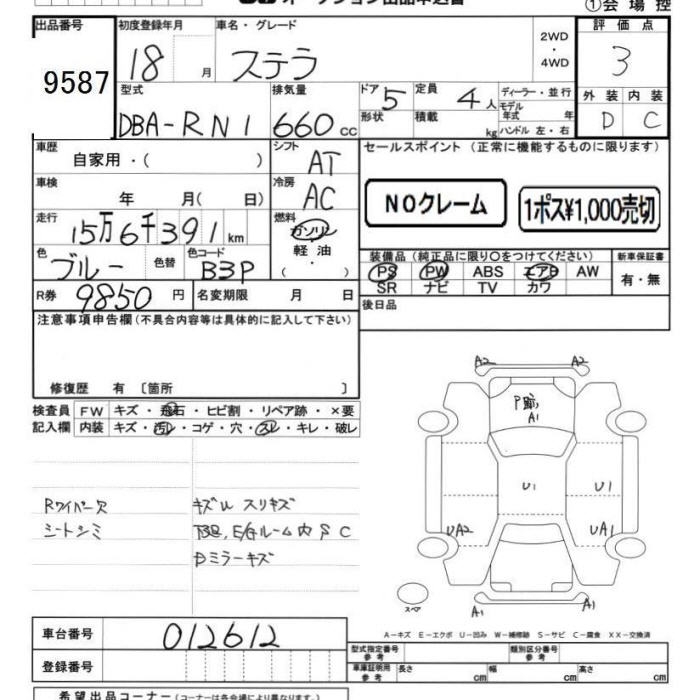 オークション出品申込書
①会場控
出品番号
9587
初度登録年月
18 月
車名・グレード
ステラ
2WD
・
4WD
評価点
3
外装 内装
D C
型式
DBA-RN1
排気量
660 cc
ドア 5
形状
定員 4人
積載 kg
ディーラー・並行
モデル年式 年
ハンドル 左・右
車歴
自家用・( )
シフト
AT
車検
年 月( 日)
冷房
AC
走行
15万6千391 km
燃料
ガソリン
軽油
・( )
色
ブルー
色替
色コード
B3P
R券 9850 円
名変期限 月 日
セールスポイント(正常に機能するものに限ります)
NOクレーム
1ポス¥1,000売切
装備品(純正品に限り○をつけてください)
PS PW ABS エアB AW
SR ナビ TV カワ
新車保証書
有・無
後日品
注意事項申告欄(不具合内容等は具体的に記入して下さい)
修復歴 有 〔箇所 〕
検査員記入欄
FW キズ・飛石・ヒビ割・リペア跡・×要
内装 キズ・汚レ・コゲ・穴・スレ・キレ・破レ
Rワイパー欠
シートシミ
キズ凹 スリキズ
下回、E/Gルーム内 S C
Dミラーキズ
A2 A2
P跡
A1
U1 U1
UA2 UA1
スペア
A1 A1
A－キズ E－エクボ U－凹み W－補修跡 S－サビ C－腐食 XX－交換済
車台番号 012612
登録番号
型式指定番号
参考
類別区分番号
参考
車庫証明用
参考
長さ cm 幅 cm 高さ cm
希望出品コーナー(コーナーは各会場により異なります。)